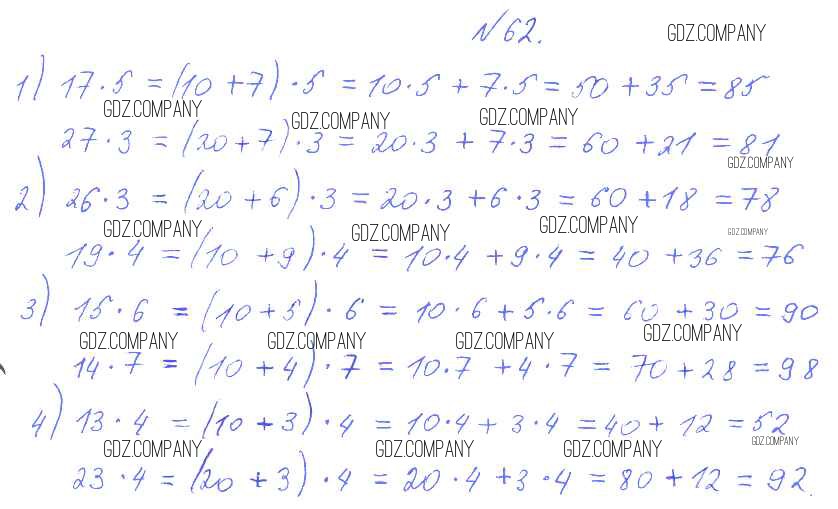 №62.
GDZ.COMPANY
1) 17·5 = (10+7)·5 = 10·5 + 7·5 = 50 + 35 = 85
GDZ.COMPANY GDZ.COMPANY GDZ.COMPANY
27·3 = (20+7)·3 = 20·3 + 7·3 = 60 + 21 = 81
GDZ.COMPANY
2) 26·3 = (20+6)·3 = 20·3 + 6·3 = 60 + 18 = 78
GDZ.COMPANY GDZ.COMPANY GDZ.COMPANY GDZ.COMPANY
19·4 = (10+9)·4 = 10·4 + 9·4 = 40 + 36 = 76
3) 15·6 = (10+5)·6 = 10·6 + 5·6 = 60 + 30 = 90
GDZ.COMPANY GDZ.COMPANY GDZ.COMPANY GDZ.COMPANY
14·7 = (10+4)·7 = 10·7 + 4·7 = 70 + 28 = 98
4) 13·4 = (10+3)·4 = 10·4 + 3·4 = 40 + 12 = 52
GDZ.COMPANY GDZ.COMPANY GDZ.COMPANY GDZ.COMPANY
23·4 = (20+3)·4 = 20·4 + 3·4 = 80 + 12 = 92.